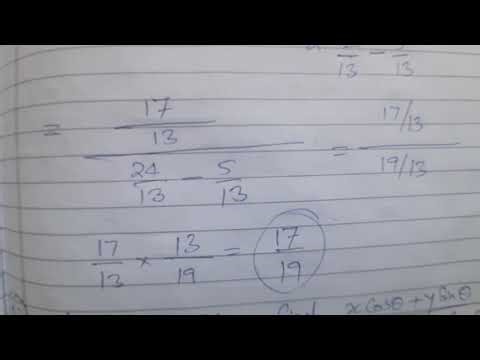 13 - 13
= 17/13 / (24/13 - 5/13) = 17/13 / 19/13
17/13 × 13/19 = 17/19
x cosθ + y sinθ